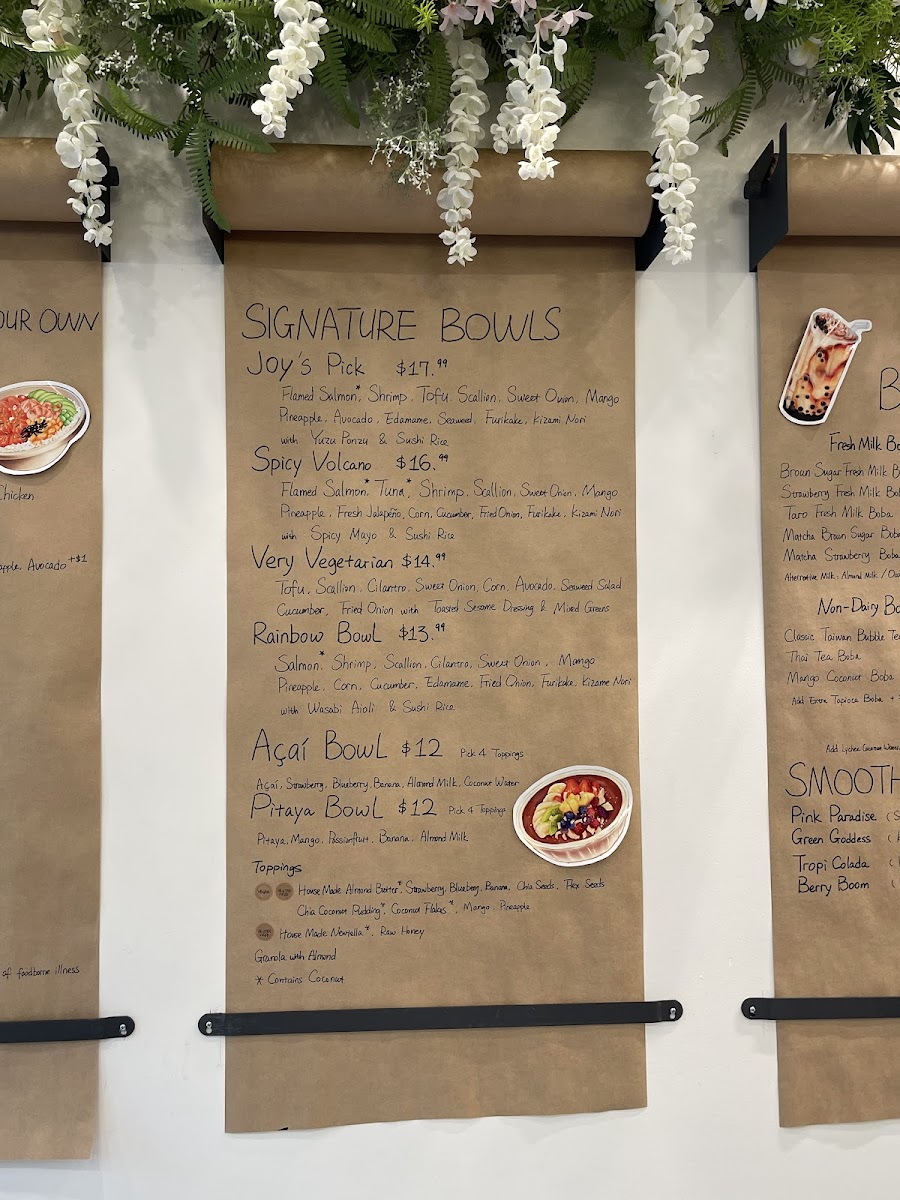 OUR OWN
Chicken
Avocado +$1
of foodborne illness
SIGNATURE BOWLS
Joy's Pick $17.99
Flamed Salmon*, Shrimp, Tofu, Scallion, Sweet Onion, Mango
Pineapple, Avocado, Edamame, Seaweed, Furikake, Kizami Nori
with Yuzu Ponzu & Sushi Rice
Spicy Volcano $16.99
Flamed Salmon*, Tuna*, Shrimp, Scallion, Sweet Onion, Mango
Pineapple, Fresh Jalapeño, Corn, Cucumber, Fried Onion, Furikake, Kizami Nori
with Spicy Mayo & Sushi Rice
Very Vegetarian $14.99
Tofu, Scallion, Cilantro, Sweet Onion, Corn, Avocado, Seaweed Salad
Cucumber, Fried Onion with Toasted Sesame Dressing & Mixed Greens
Rainbow Bowl $13.99
Salmon*, Shrimp, Scallion, Cilantro, Sweet Onion, Mango
Pineapple, Corn, Cucumber, Edamame, Fried Onion, Furikake, Kizame Nori
with Wasabi Aioli & Sushi Rice
Açaí Bowl $12 Pick 4 Toppings
Açaí, Strawberry, Blueberry, Banana, Almond Milk, Coconut Water
Pitaya Bowl $12 Pick 4 Toppings
Pitaya, Mango, Passionfruit, Banana, Almond Milk
Toppings
House Made Almond Butter*, Strawberry, Blueberry, Banana, Chia Seeds, Flex Seeds
Chia Coconut Pudding*, Coconut Flakes*, Mango, Pineapple
House Made Newtella*, Raw Honey
Granola with Almond
* Contains Coconut
B
Fresh Milk Bo
Broun Sugar Fresh Milk B
Strawberry Fresh Milk Bo
Taro Fresh Milk Boba
Matcha Brown Sugar Bob
Matcha Strawberry Boba
Alternative Milk: Almond Milk / Oa
Non-Dairy Bo
Classic Taiwan Bubble Te
Thai Tea Boba
Mango Coconut Boba
Add Extra Tapioca Boba +
Add Lychee Coconut
SMOOTH
Pink Paradise (S
Green Goddess (
Tropi Colada (
Berry Boom (